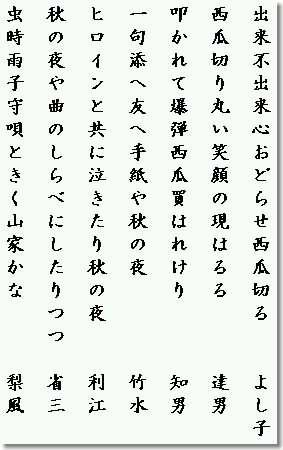 出来不出来心おどらせ西瓜切る　よし子
西瓜切り丸い笑顔の現はるる　達男
叩かれて爆弾西瓜買はれけり　知男
一句添へ友へ手紙や秋の夜　竹水
ヒロインと共に泣きたり秋の夜　利江
秋の夜や曲のしらべにしたりつつ　省三
虫時雨子守唄ときく山家かな　梨風